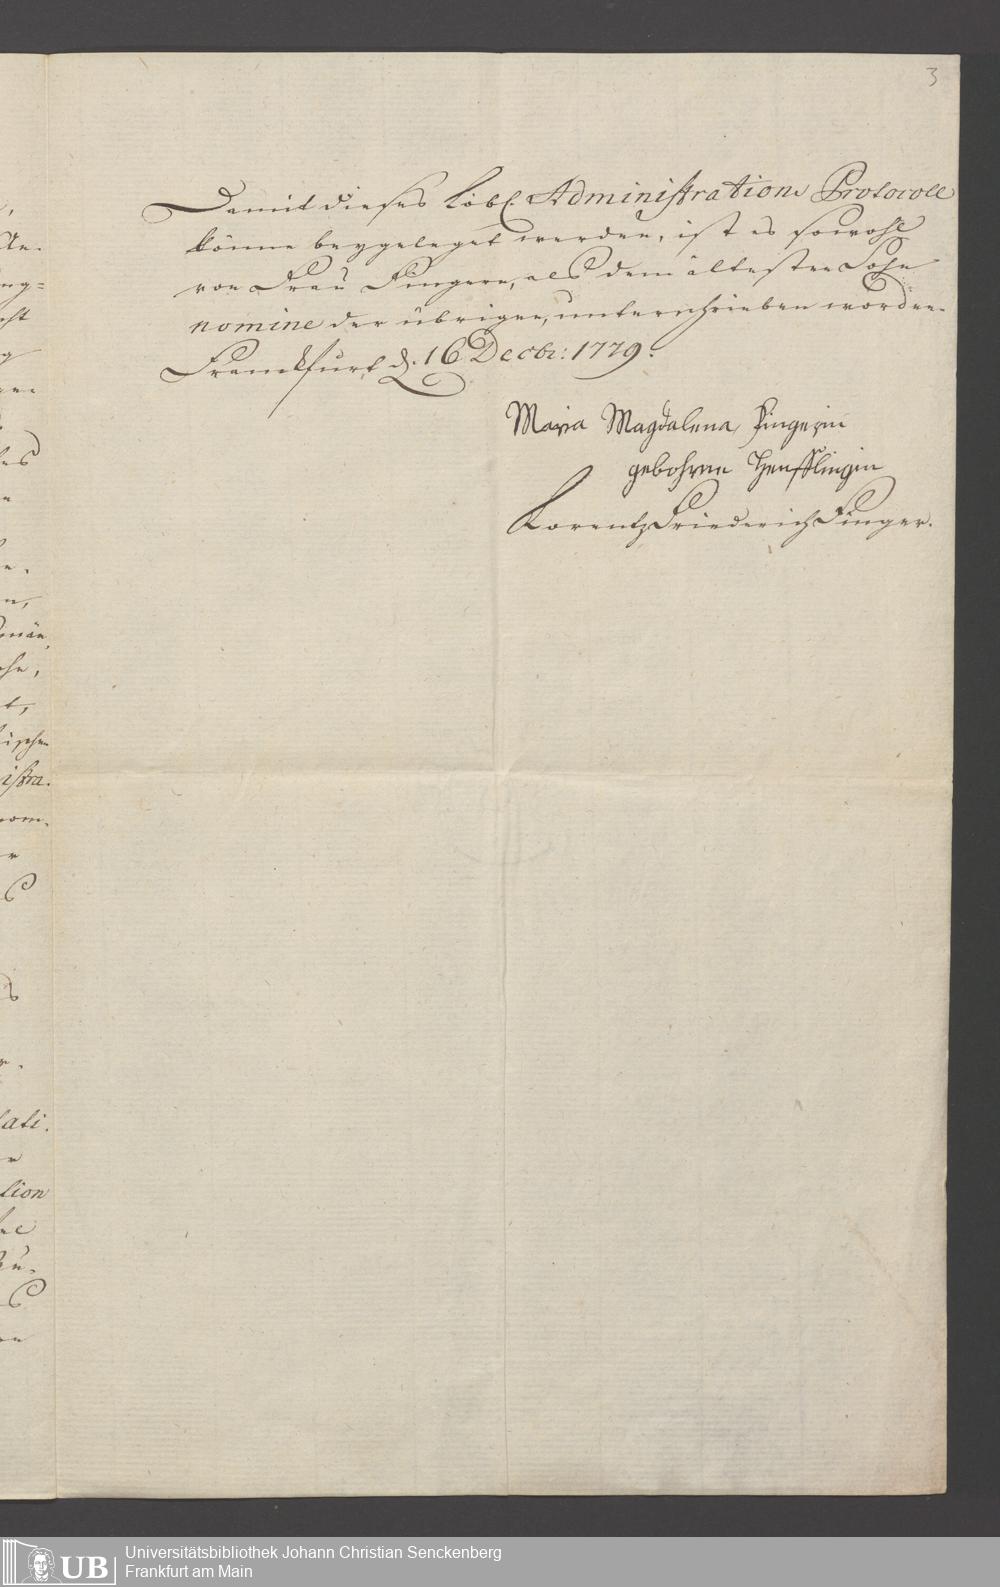 3
Damit dieses Löbl. Administrations Protocoll
könne beygeleget werden, ist es sowohl
von Frau Fingern, als dem ältesten Sohn
nomine der übrigen, unterschrieben worden.
Franckfurt d. 16 Decbr: 1779.
Maria Magdalena Fingerin
gebohrne
Lorentz Friederich Finger.
UB
Universitätsbibliothek Johann Christian Senckenberg
Frankfurt am Main